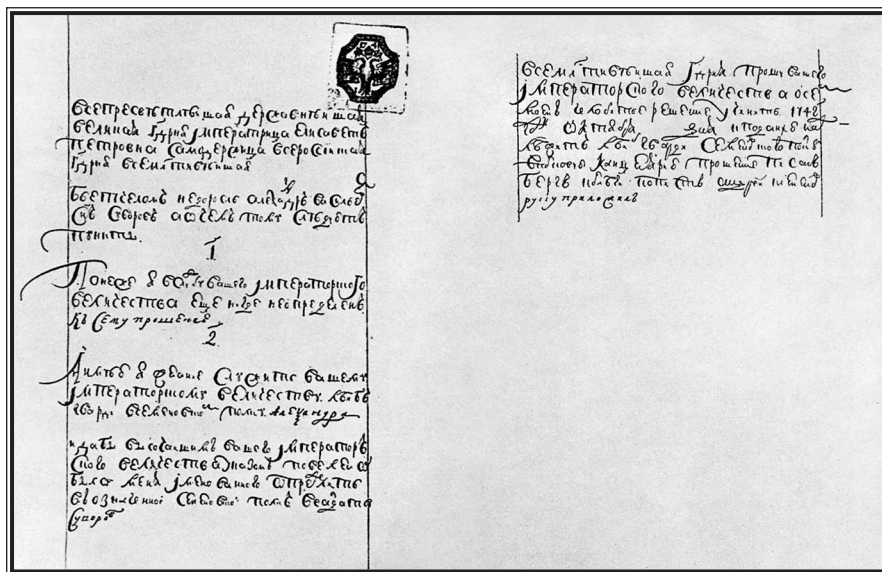 всепресветлѣишая державнѣишая
великая гдрня императрица елисаветъ
петровна самодержица всеросиiская
гдрня всемлтивѣишая
бьетчеломъ недоросль алеѯандръ василье
снъ Суворовъ а очемъ тому следуетъ
пункты.
1
Понеже я вслужбу вашего императорского
величества еще нигде неопределенъ
къ сему прошению
2
Имею я желание служить вашему
императорскому величеству лейбъ
гвардиi всеменовскомъ полку Александръ
идабы высочаишимъ вашего императоръ
ского величества указомъ повелено
было меня iмянованного определить
въозначенноi семеновскоi полкъ всалдаты
Суворовъ
всемлтивѣишая гдрня прошу вашего
императорского величества осе
моемъ челобитье решение учинить 1742
году октября дня кподанию на
лейбъ гвардиi Семеновского полку
канцелярiе прошение писалъ
руку приложилъ